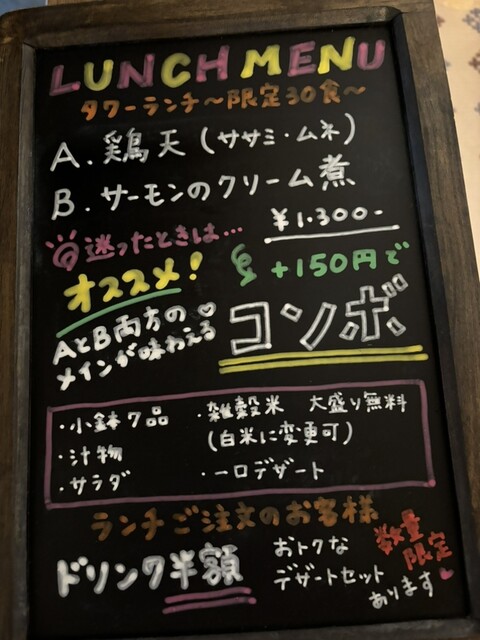 LUNCH MENU
タワーランチ～限定30食～
A. 鶏天(ササミ・ムネ)
B. サーモンのクリーム煮
¥1.300-
迷ったときは…
オススメ! +150円で
AとB両方の♡
メインが味わえる
コンボ
・小鉢7品
・汁物
・サラダ
・雑穀米 大盛り無料
(白米に変更可)
・一口デザート
ランチご注文のお客様
ドリンク半額
おトクな
デザートセット
あります♥
数量
限定